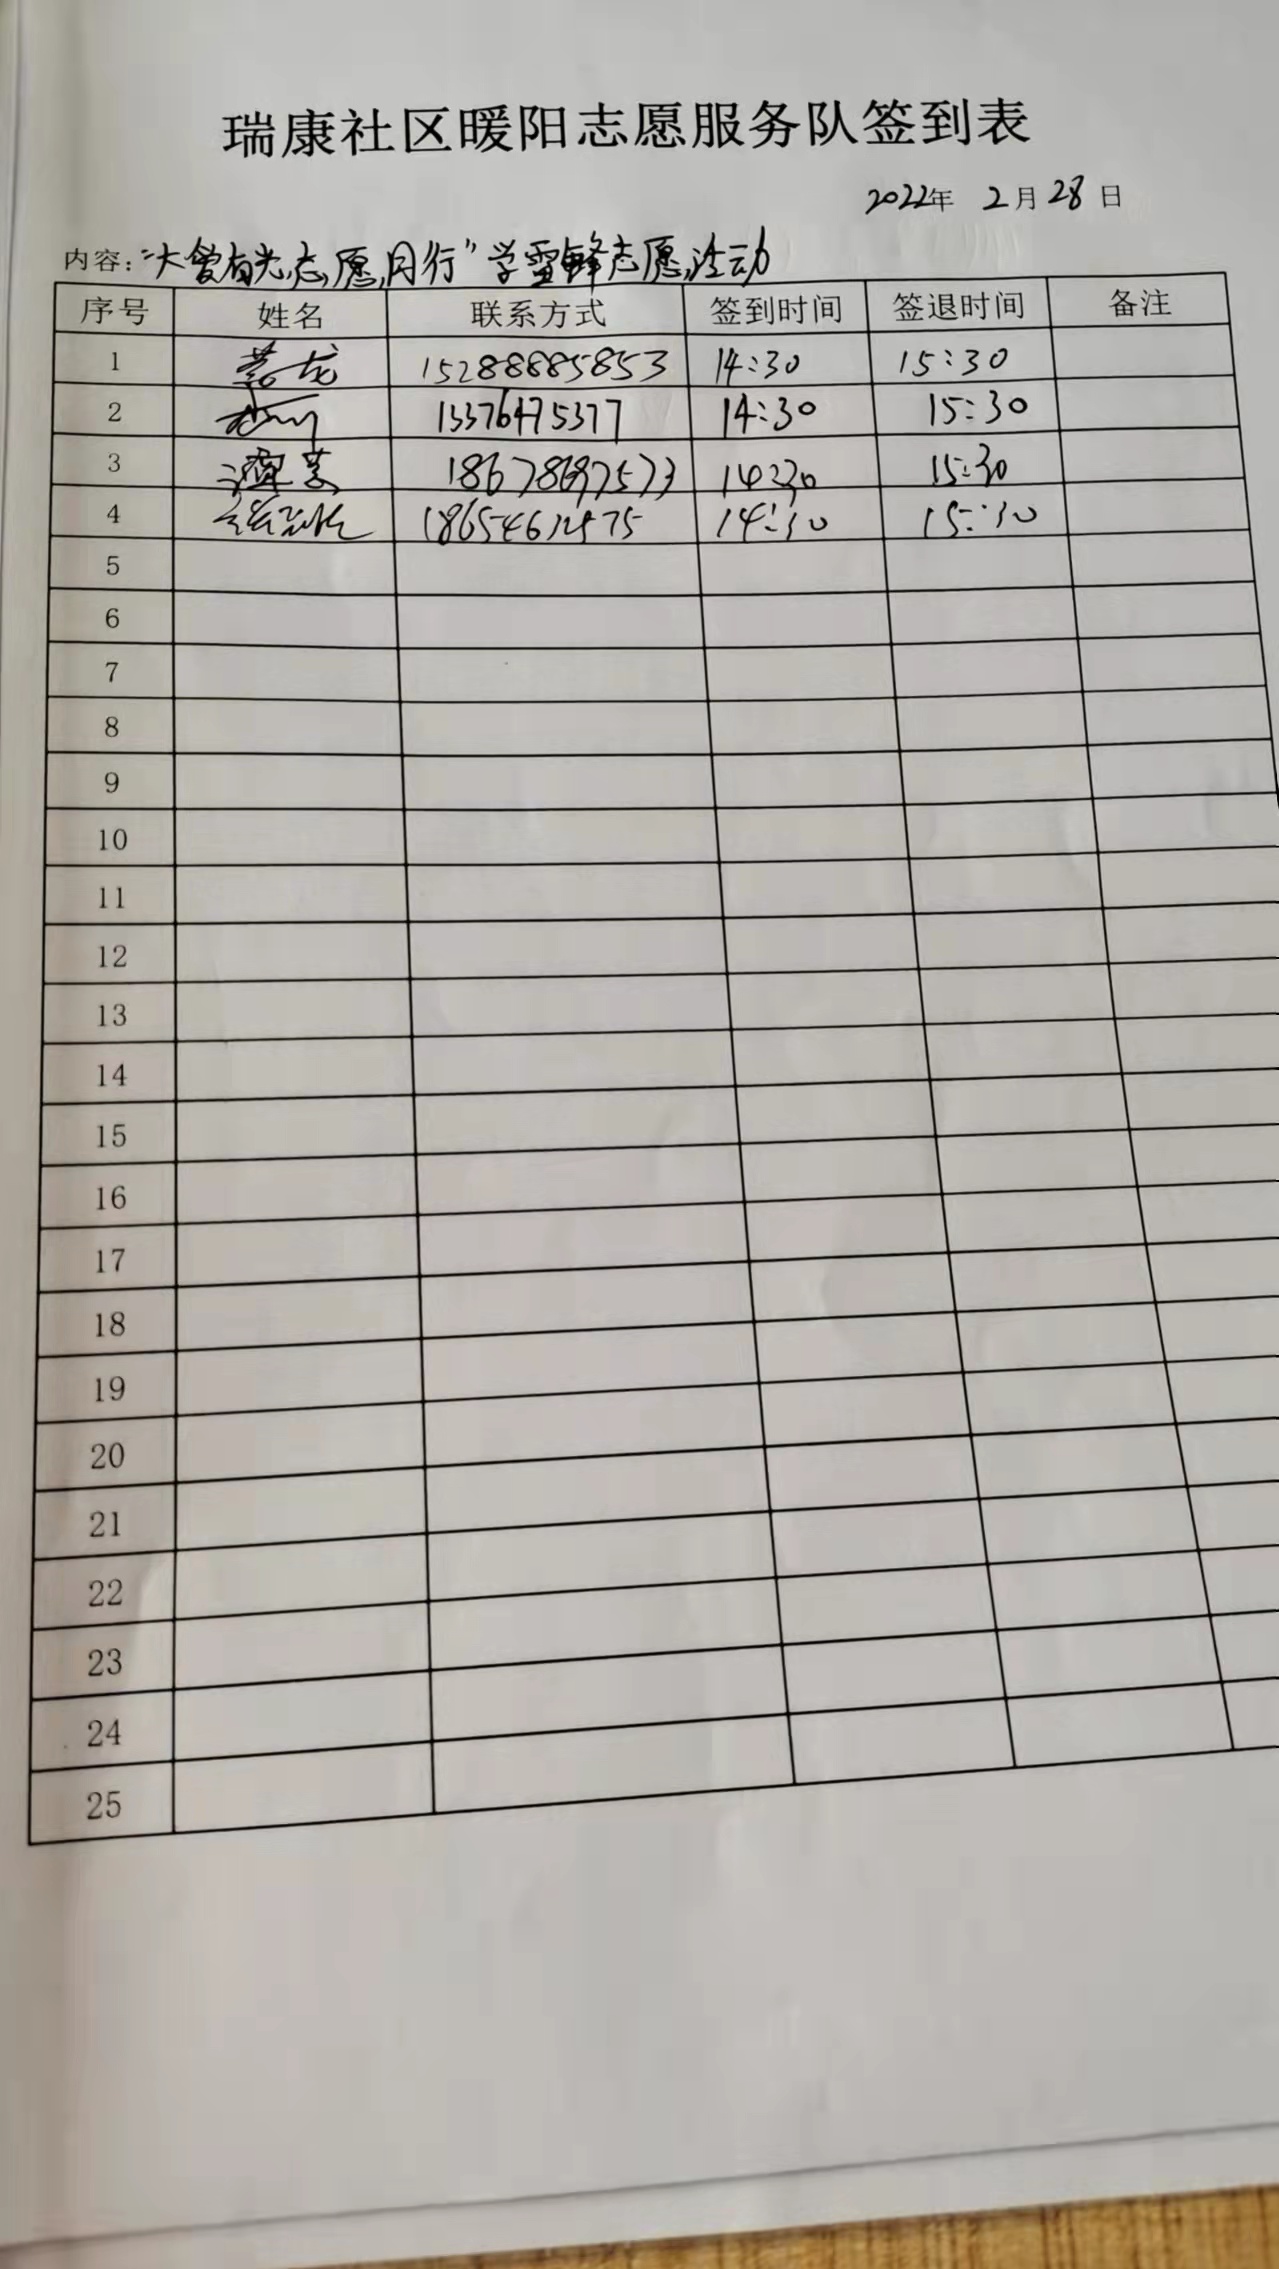 瑞康社区暖阳志愿服务队签到表
2022年 2月28日
内容："大爱有光,志愿同行"学雷锋志愿活动
序号 姓名 联系方式 签到时间 签退时间 备注
1 15288885853 14:30 15:30
2 13376475377 14:30 15:30
3 14:30 15:30
4 14:30 15:30
5
6
7
8
9
10
11
12
13
14
15
16
17
18
19
20
21
22
23
24
25